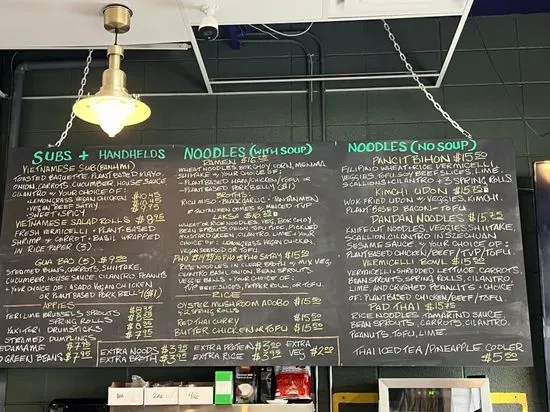 SUBS + HANDHELDS
VIETNAMESE SUB (BANH MI)
TOASTED BAGUETTE, PLANT BASED MAYO,
ONION, CARROTS, CUCUMBER, HOUSE SAUCE,
CILANTRO + YOUR CHOICE OF:
• LEMONGRASS VEGAN CHICKEN
• VEGAN BEEF SATAY
• SWEET + SPICY
VIETNAMESE SALAD ROLLS $8.95
FRESH VERMICELLI + PLANT-BASED
SHRIMP + CARROT + BASIL WRAPPED
IN RICE PAPER (3)
GUA BAO (3) $9.00
STEAMED BUNS, CARROTS, SHIITAKE,
CUCUMBER, HOUSE SAUCE, CILANTRO, PEANUTS
+ YOUR CHOICE OF: ASADO VEGAN CHICKEN
OR PLANT BASED PORK BELLY (+$1)
APPIES
PERI LIME BRUSSELS SPROUTS
SPRING ROLLS
YAKITORI DRUMSTICKS
STEAMED DUMPLINGS
EDAMAME $7.95
GREEN BEANS $7.95
NOODLES (WITH SOUP)
RAMEN
WHEAT NOODLES, BOK CHOY, CORN, MENMA,
SHIITAKE, + YOUR CHOICE OF:
- PLANT BASED HAM/CHICKEN/TOFU OR
- PLANT BASED PORK BELLY (+$1)
BROTHS:
RICH MISO, BLACK GARLIC, TANTANMEN
* TANTANMEN COMES W/ MINCED TVP
LAKSA
WHEAT OR RICE NOODLES, VEG, BOK CHOY,
BEAN SPROUTS, ONION, TOFU PUFF, PICKLED
MUSTARD GREEN, CILANTRO, LIME + YOUR
CHOICE OF: LEMONGRASS VEGAN CHICKEN,
VEGAN SEAFOOD OR TOFU.
PHO OR PHO SATAY $15.50
RICE NOODLES IN CLEAR BROTH, MIX VEG,
CILANTRO, BASIL, ONION, BEAN SPROUTS,
VEGGIES + YOUR CHOICE OF:
TVP BEEF SLICES, PEPPER ROLL, OR TOFU.
RICE
OYSTER MUSHROOM ADOBO $15.50
+ 2 SPRING ROLLS
RED THAI CURRY $15.50
BUTTER CHICKEN OR TOFU $15.50
EXTRA NOODS $3.95 EXTRA PROTEIN $3.00 EXTRA
EXTRA BROTH $3.95 EXTRA RICE $3.95 VEG $2.00
NOODLES (NO SOUP)
PANCIT BIHON $15.50
FILIPINO WHEAT + RICE VERMICELLI,
VEGGIES, TOFU, SOY BEEF SLICES, LIME,
SCALLIONS, CILANTRO + 2 SPRING ROLLS
KIMCHI UDON $15.50
WOK-FRIED UDON W/ VEGGIES, KIMCHI,
PLANT BASED BACON + TOFU
DANDAN NOODLES $15.50
KNIFE CUT NOODLES, VEGGIES, SHIITAKE,
SCALLION, CILANTRO IN SZECHUAN
SESAME SAUCE + YOUR CHOICE OF:
PLANT BASED CHICKEN/BEEF/TVP/TOFU.
VERMICELLI BOWL $15.50
VERMICELLI, SHREDDED LETTUCE, CARROTS,
BEAN SPROUTS, SPRING ROLLS, CILANTRO,
LIME, AND CRUSHED PEANUTS + CHOICE
OF: PLANT BASED CHICKEN/BEEF/TOFU.
PAD THAI $15.95
RICE NOODLES, TAMARIND SAUCE,
BEAN SPROUTS, CARROTS, CILANTRO,
PEANUTS, TOFU, LIME.
THAI ICED TEA/PINEAPPLE COOLER
$5.50